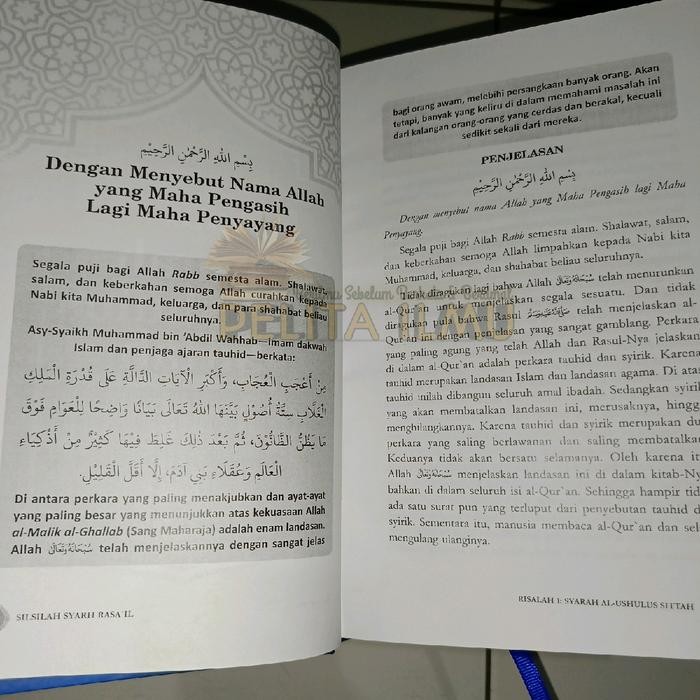 بِسْمِ اللهِ الرَّحْمٰنِ الرَّحِيْمِ
Dengan Menyebut Nama Allah
yang Maha Pengasih
Lagi Maha Penyayang
Segala puji bagi Allah Rabb semesta alam. Shalawat,
salam, dan keberkahan semoga Allah curahkan kepada
Nabi kita Muhammad, keluarga, dan para shahabat beliau
seluruhnya.
Asy-Syaikh Muhammad bin 'Abdil Wahhab—Imam dakwah
Islam dan penjaga ajaran tauhid—berkata:
مِنْ أَعْجَبِ الْعُجَابِ، وَأَكْبَرِ الْآيَاتِ الدَّالَّةِ عَلَى قُدْرَةِ الْمَلِكِ
الْغَلَّابِ سِتَّةُ أُصُوْلٍ بَيَّنَهَا اللهُ تَعَالَى بَيَانًا وَاضِحًا لِلْعَوَامِ فَوْقَ
مَا يَظُنُّ الظَّانُّوْنَ، ثُمَّ بَعْدَ ذٰلِكَ غَلِطَ فِيْهَا كَثِيْرٌ مِنْ أَذْكِيَاءِ
الْعَالَمِ وَعُقَلَاءِ بَنِي آدَمَ، إِلَّا أَقَلَّ الْقَلِيْلِ.
Di antara perkara yang paling menakjubkan dan ayat-ayat
yang paling besar yang menunjukkan atas kekuasaan Allah
al-Malik al-Ghallab (Sang Maharaja) adalah enam landasan.
Allah سُبْحَانَهُ وَتَعَالَى telah menjelaskannya dengan sangat jelas
SILSILAH SYARH RASA'IL
bagi orang awam, melebihi persangkaan banyak orang. Akan
tetapi, banyak yang keliru di dalam memahami masalah ini
dari kalangan orang-orang yang cerdas dan berakal, kecuali
sedikit sekali dari mereka.
PENJELASAN
بِسْمِ اللهِ الرَّحْمٰنِ الرَّحِيْمِ
Dengan menyebut nama Allah yang Maha Pengasih lagi Maha
Penyayang.
Segala puji bagi Allah Rabb semesta alam. Shalawat, salam,
dan keberkahan semoga Allah limpahkan kepada Nabi kita
Muhammad, keluarga, dan shahabat beliau seluruhnya.
Tidak diragukan lagi bahwa Allah سُبْحَانَهُ وَتَعَالَى telah menurunkan
al-Qur'an untuk menjelaskan segala sesuatu. Dan tidak
diragukan pula bahwa Rasul telah menjelaskan al-
Qur'an ini dengan penjelasan yang sangat gamblang. Perkara
yang paling agung yang telah Allah dan Rasul-Nya jelaskan
di dalam al-Qur'an adalah perkara tauhid dan syirik. Karena
tauhid merupakan landasan Islam dan landasan agama. Di atas
tauhid inilah dibangun seluruh amal ibadah. Sedangkan syirik
yang akan membatalkan landasan ini, merusaknya, hingg
menghilangkannya. Karena tauhid dan syirik merupakan du
perkara yang saling berlawanan dan saling membatalka
Keduanya tidak akan bersatu selamanya. Oleh karena it
Allah سُبْحَانَهُ وَتَعَالَى menjelaskan landasan ini di dalam kitab-Ny
bahkan di dalam seluruh isi al-Qur'an. Sehingga hampir tida
ada satu surat pun yang terluput dari penyebutan tauhid d
syirik. Sementara itu, manusia membaca al-Qur'an dan sel
mengulang ulanginya.
RISALAH 1: SYARAH AL-USHULUS SITTAH
PELITA ILMU